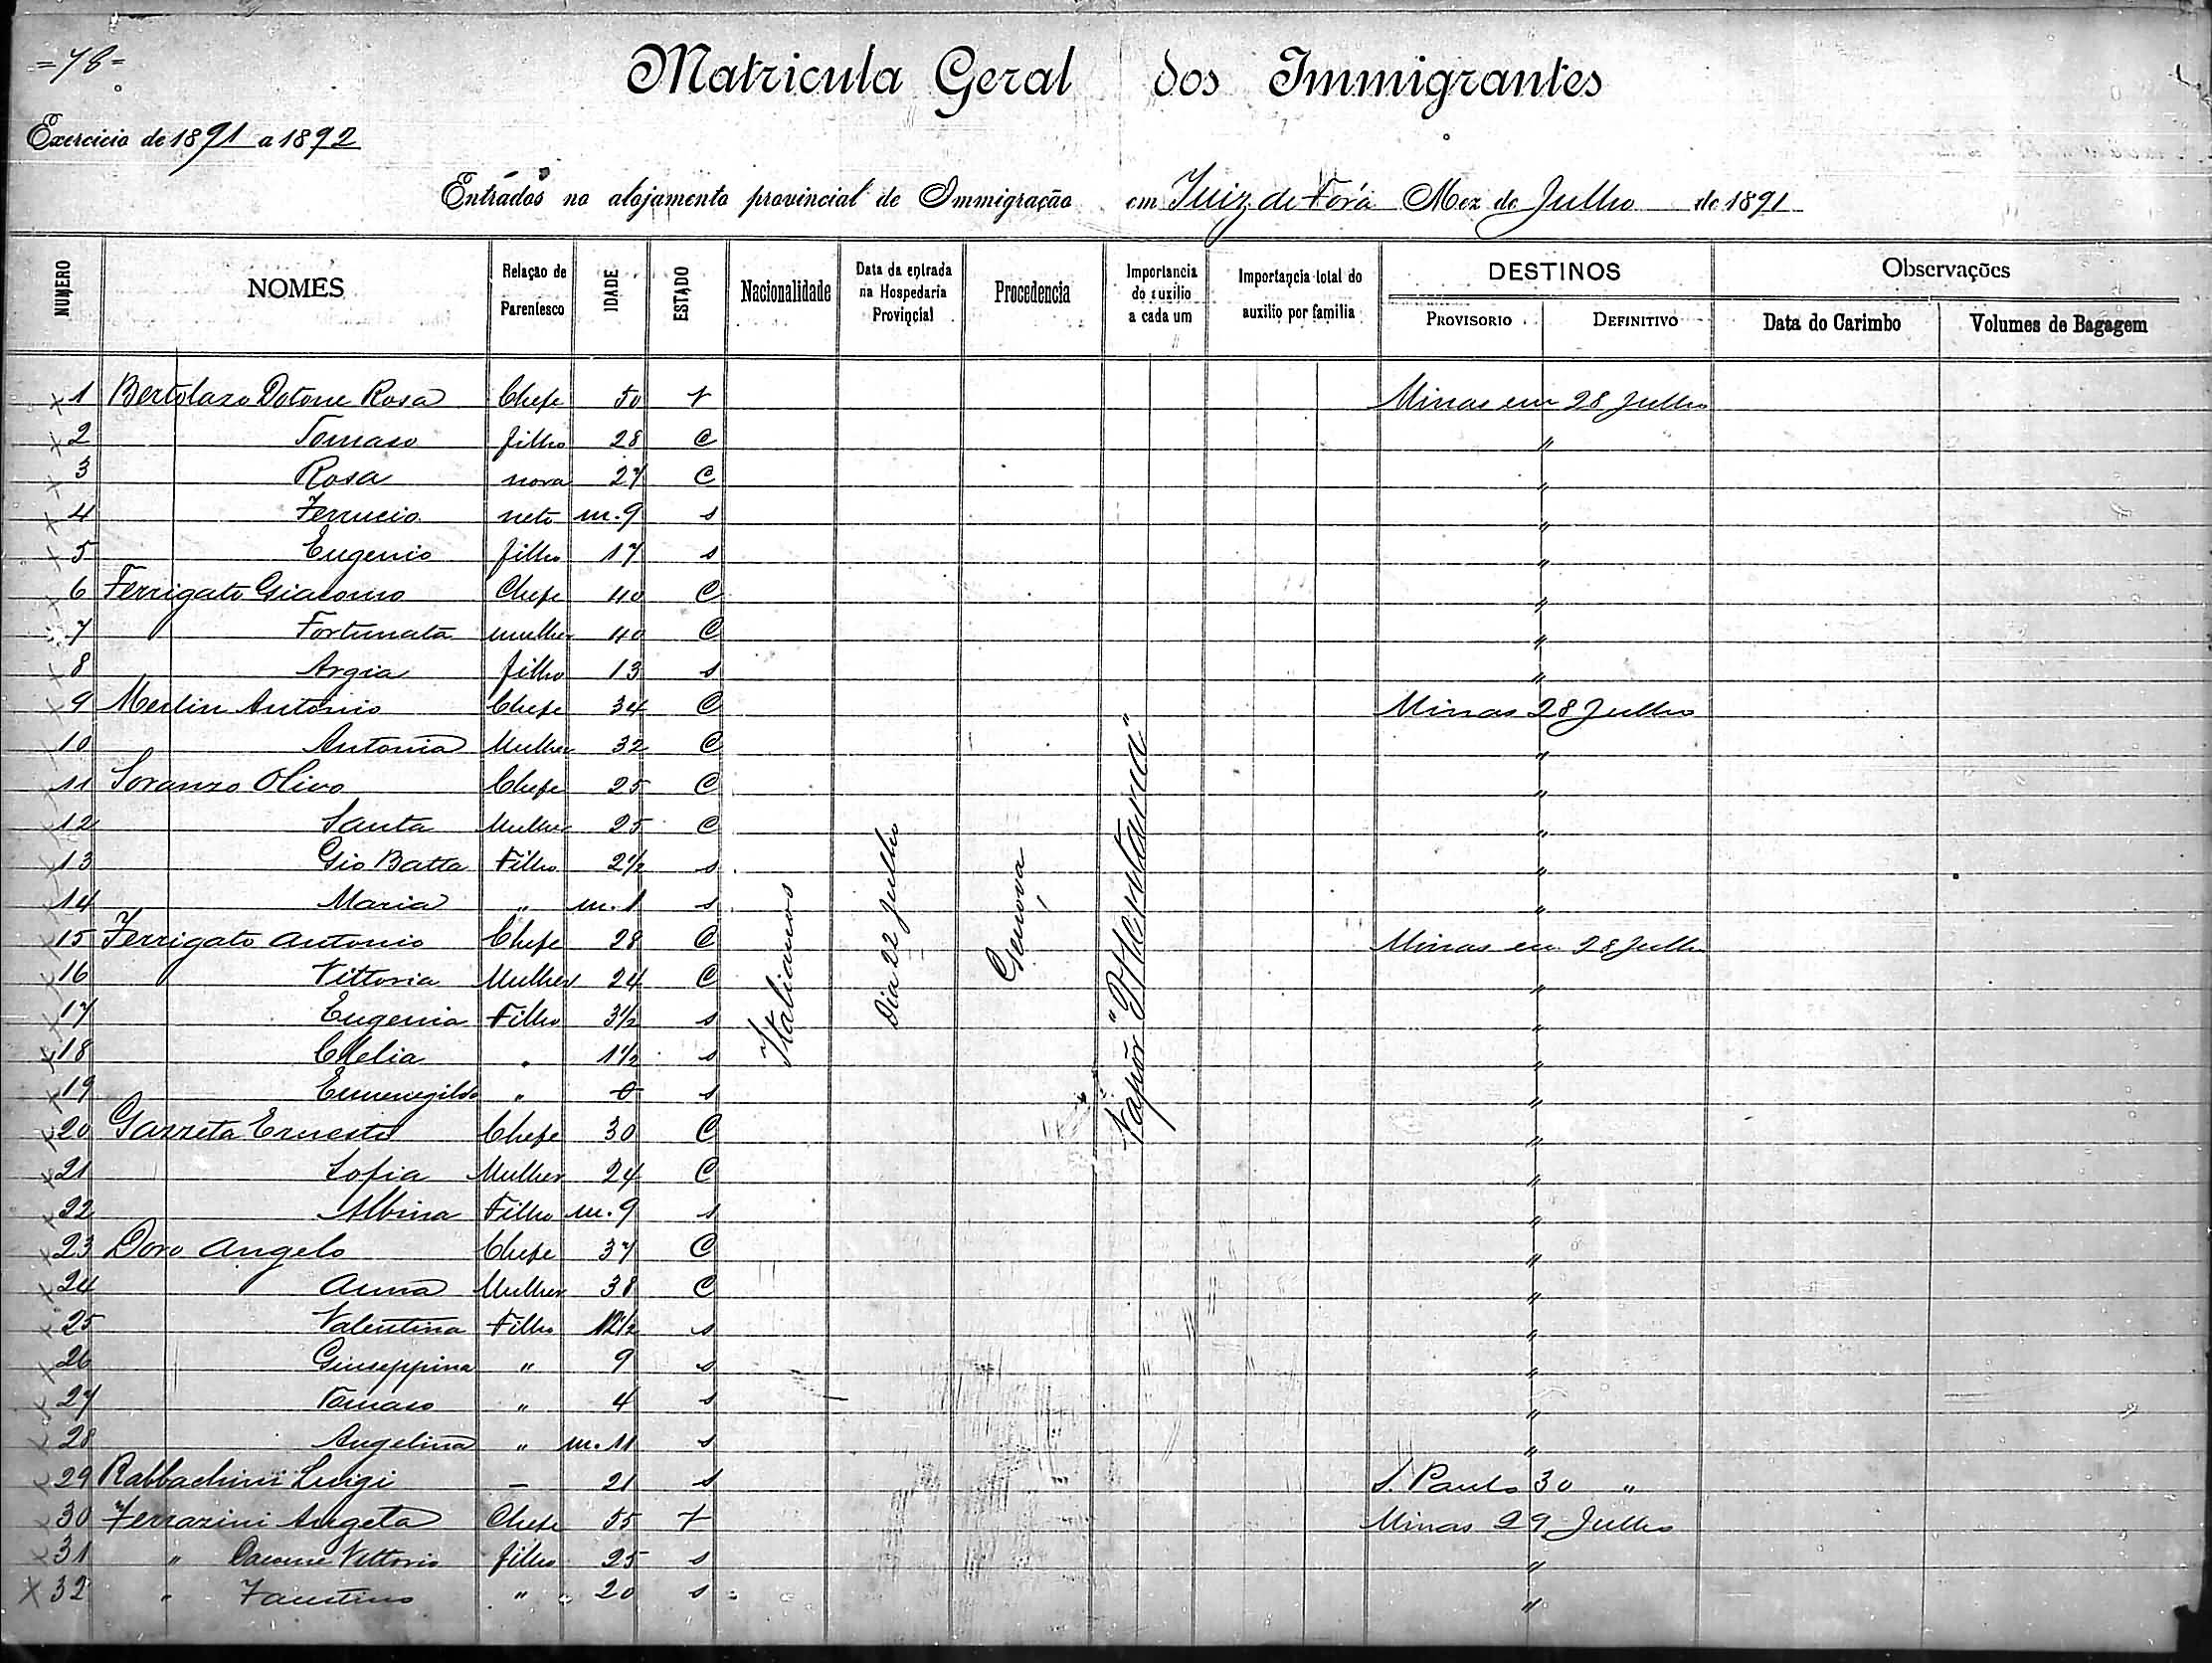 =78=
Matricula Geral dos Immigrantes
Exercicio de 1891 a 1892
Entrados no alojamento provincial de Immigração em Juiz de Fóra Mez de Julho de 1891
NUMERO NOMES Relação de Parentesco IDADE ESTADO Nacionalidade Data da entrada na Hospedaria Provincial Procedencia Importancia do auxilio a cada um Importancia total do auxilio por familia DESTINOS Observações
PROVISORIO DEFINITIVO Data do Carimbo Volumes de Bagagem
1 Bertolazo Rosa Chefe 50 Minas em 28 Julho
2 Tomaso filho 28 C "
3 Rosa nora 27 C "
4 Ferrucio neto m. 9 s "
5 Eugenio filho 17 s "
6 Ferrigato Giacomo Chefe 40 C "
7 Fortunata mulher 40 C "
8 Argia filho 13 s "
9 Merlin Antonio Chefe 34 C Minas 28 Julho
10 Antonia Mulher 32 C "
11 Soranzo Olivo Chefe 25 C "
12 Santa Mulher 25 C "
13 Gio Batta Filho 2½ s "
14 Maria " m. 1 s "
15 Ferrigato Antonio Chefe 28 C Minas em 28 Julho
16 Vittoria Mulher 24 C "
17 Eugenia Filho 3½ s "
18 Clelia " 1½ s "
19 Ermenegildo " 0 s "
20 Garzeta Ernesto Chefe 30 C "
21 Sofia Mulher 24 C "
22 Albina Filho m. 9 s "
23 Doro Angelo Chefe 37 C "
24 Anna Mulher 38 C "
25 Valentina Filho 12½ s "
26 Giuseppina " 9 s "
27 Tomaso " 4 s "
28 Angelina " m. 11 s "
29 Rabbachini Luigi — 21 s S. Paulo 30 "
30 Ferrazini Angela Chefe 55 Minas 29 Julho
31 " Vittorio filho 25 s "
32 " Faustino " 20 s "
Italianos
Dia 22 Julho
Genova
Vapôr